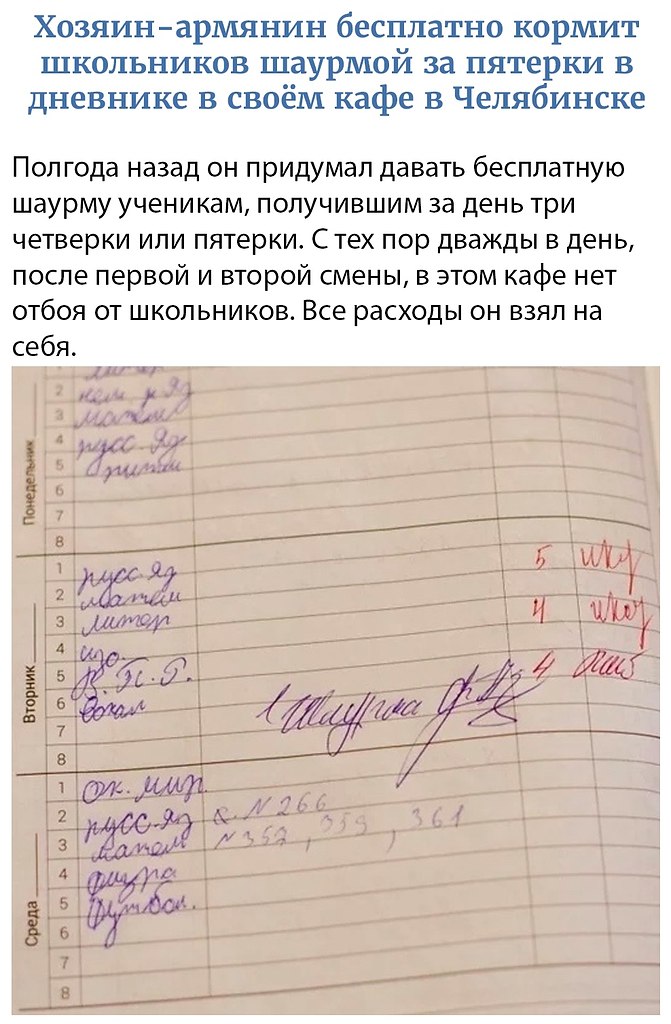 Хозяин-армянин бесплатно кормит
школьников шаурмой за пятерки в
дневнике в своём кафе в Челябинске
Полгода назад он придумал давать бесплатную
шаурму ученикам, получившим за день три
четверки или пятерки. С тех пор дважды в день,
после первой и второй смены, в этом кафе нет
отбоя от школьников. Все расходы он взял на
себя.
Понедельник
2 нем. яз
3 матем
4 русс. яз
5
6
7
8
Вторник
1 русс. яз 5
2 матем 4
3 литер
4 изо. 4
5
6 вокал 1 Шаурма
7
8
Среда
1 ок. мир.
2 русс. яз N 266
3 матем N 357, 359, 361
4 физра
5 футбол.
6
7
8